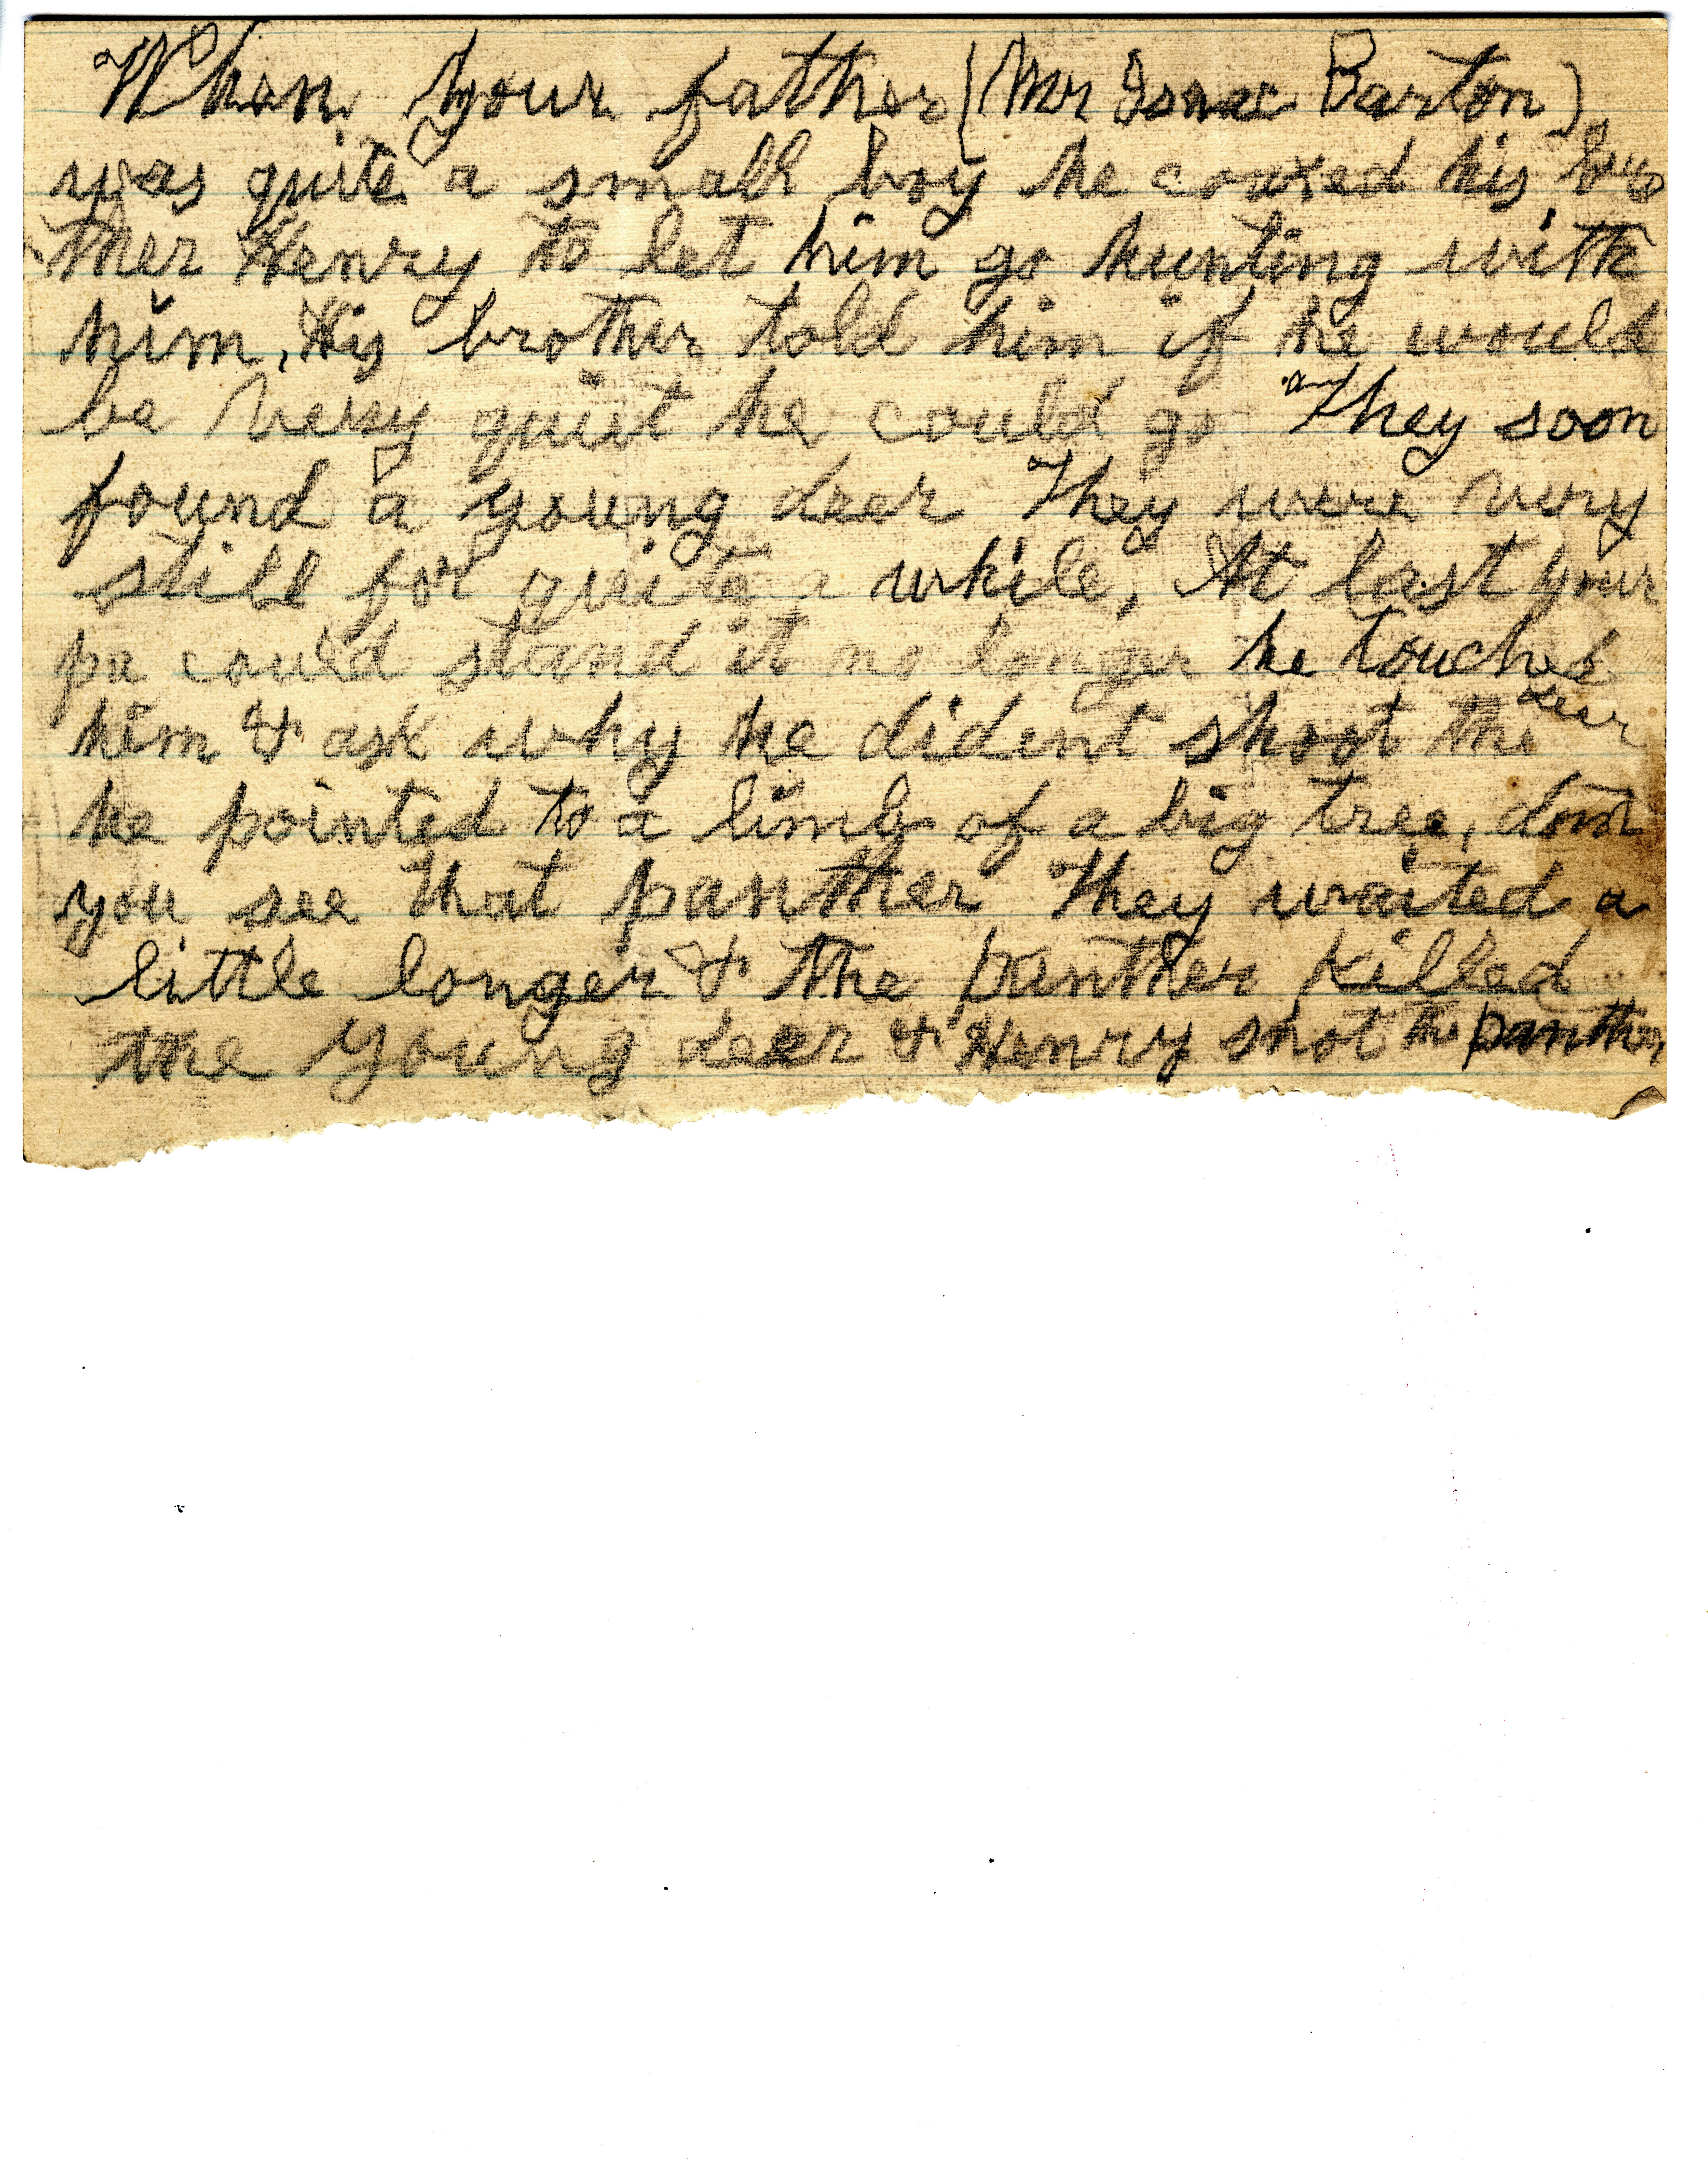 When your father (Mr Isaac Barton)
was quite a small boy he coaxed his bro
ther Henry to let him go hunting with
him, His brother told him if he would
be very quiet he could go They soon
found a young deer They were very
still for quite a while, At last your
pa could stand it no longer he touched
him & ask why he dident shoot the deer
he pointed to a limb of a big tree, dont
you see that panther They waited a
little longer & the panther killed
the young deer & Henry shot the panther